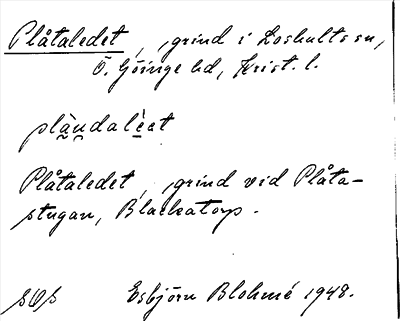 Plåtaledet, grind i Loshults sn,
Ö. Göinge hd, Krist. l.
Plåtaledet, grind vid Plåta-
stugan, Blackatorp.
Esbjörn Blohmé 1948.